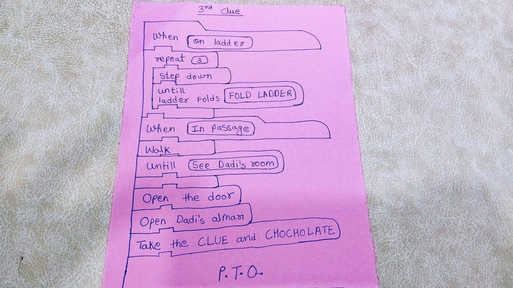 3rd Clue
When on ladder
repeat 3
Step down
untill
ladder folds FOLD LADDER
When In passage
Walk
Untill See Dadi's room
Open the door
Open Dadi's almari
Take the CLUE and CHOCHOLATE
P.T.O.